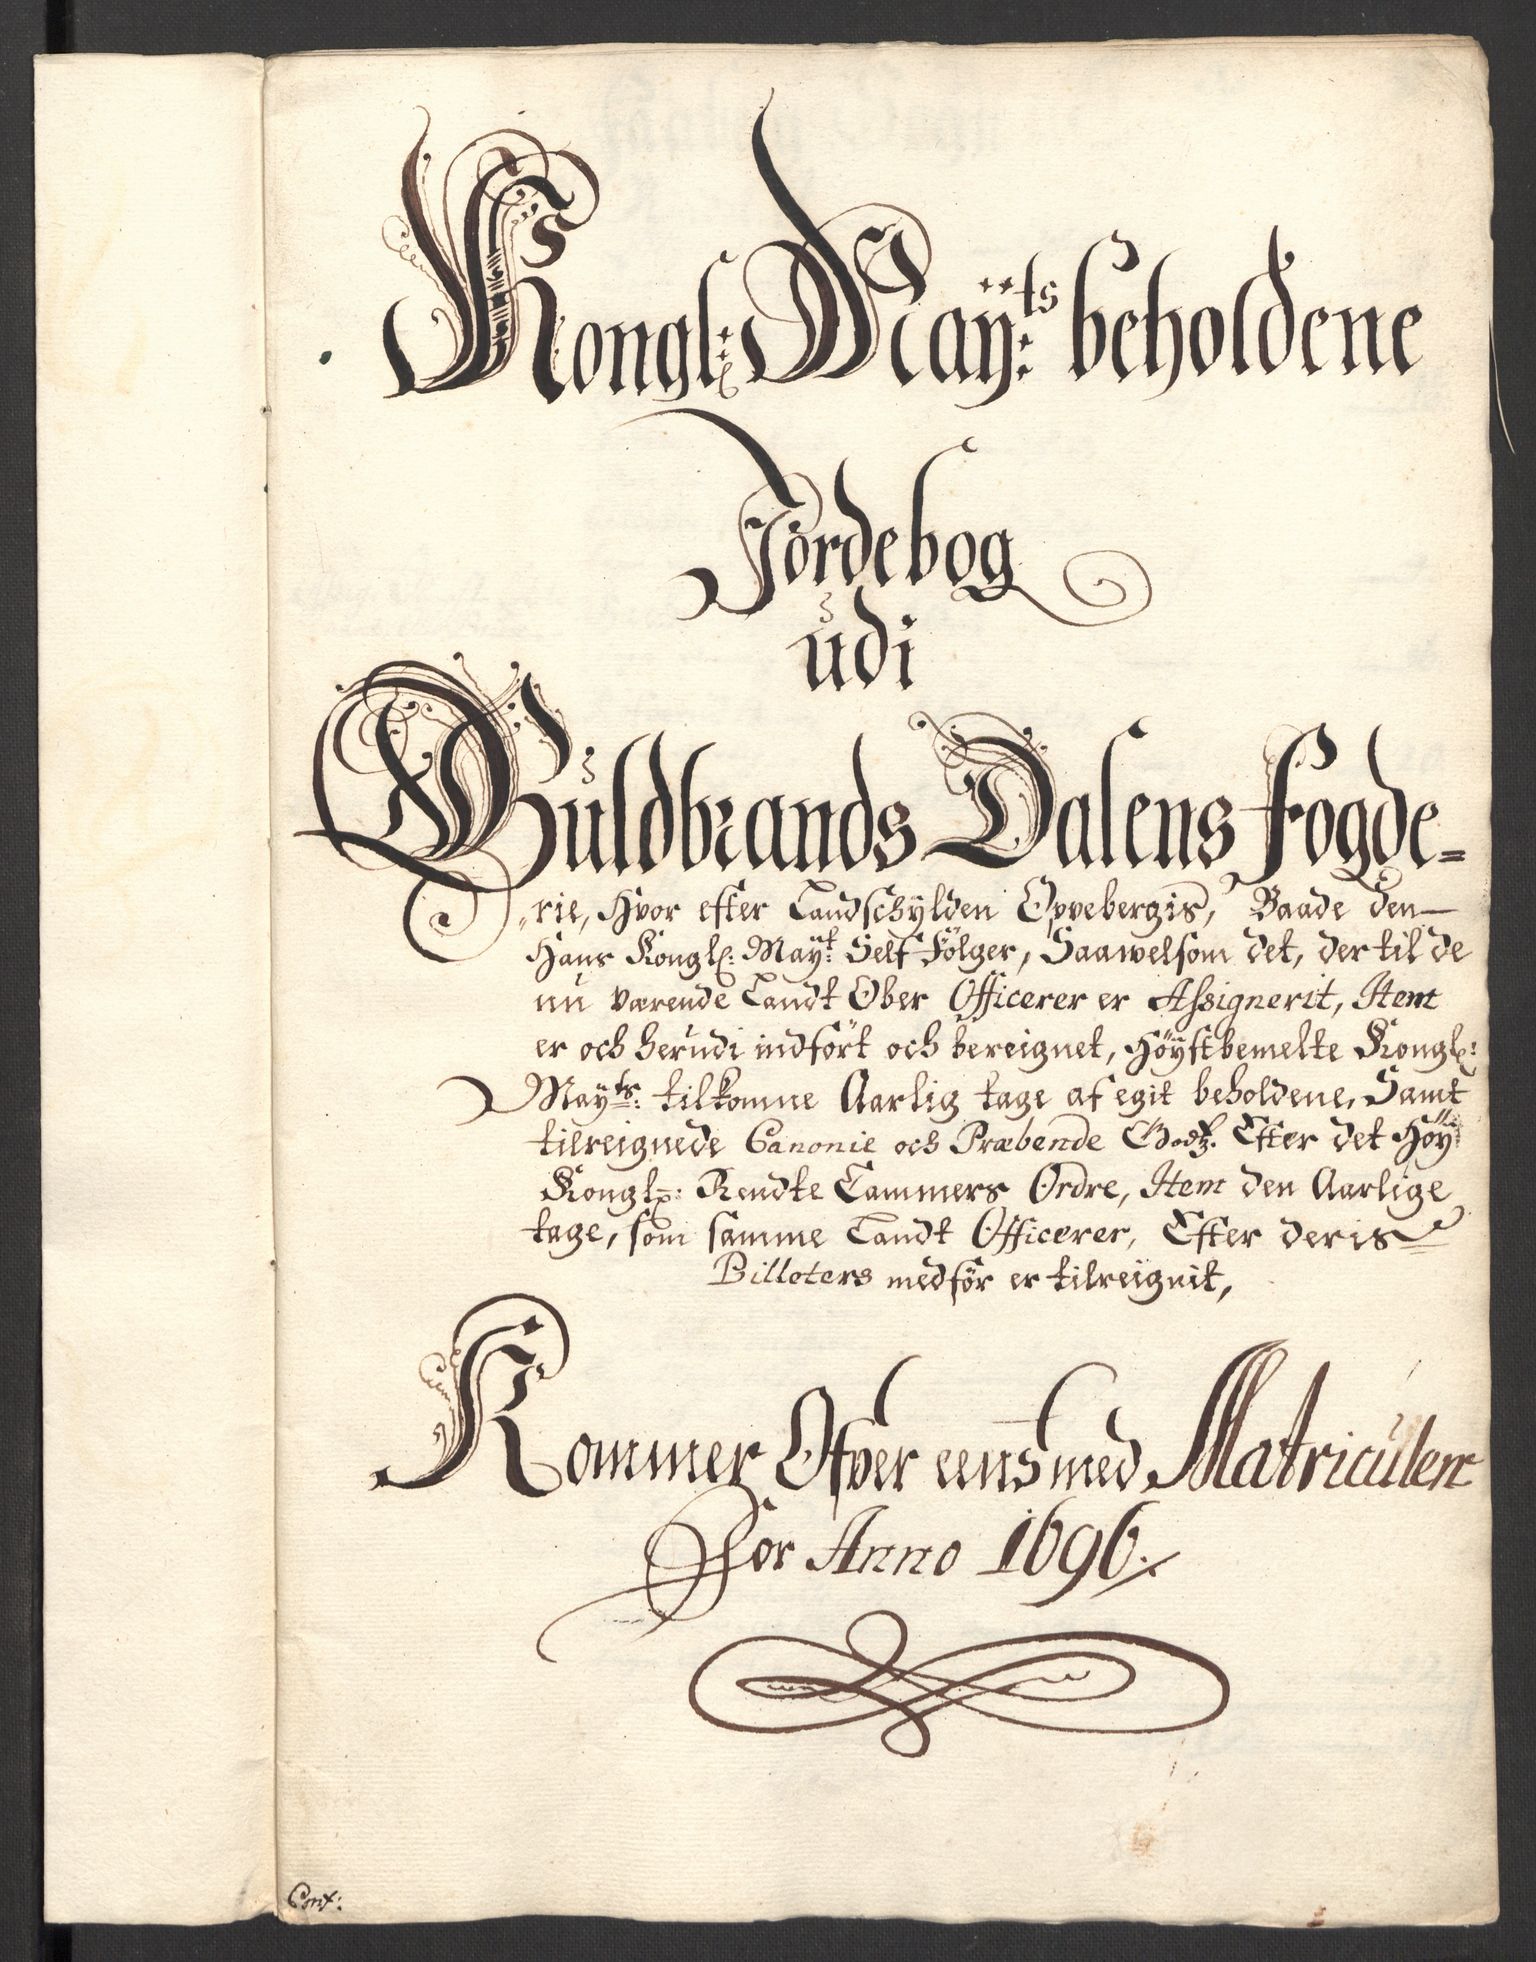 Kongl: Maÿ:ts beholdene
Jordebog
udi
Guldbrands Dalens fogde=
rie, Hvor efter Landschylden Oppebergis, Baade den
Hans Kongl: Maÿ:t Self Fölger, Saawelsom det, der til de
nu værende Landt Ober Officerer er Assignerit, Item
er och herudi indfört och bereignet, Höÿstbemelte Kongl:
Maÿts: tilkomne Aarlig tage af egit beholdene, Samt
tilreignede Canonie och Præbende Godtz. Efter det Höÿ
Kongl: Rendte Cammers Ordre, Item den Aarlige
tage, som samme Landt Officerer, Efter deris
Billeters medför er tilreignit,
Kommer Ofver eens med Matriculen
For Anno 1696.
Conf: